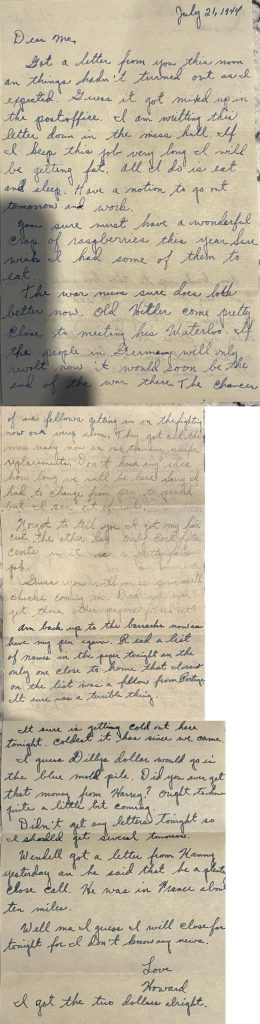 July 21, 1944
Dear Ma,
Got a letter from you this morn
an things hadn't turned out as I
expected. Guess it got mixed up in
the postoffice. I am writing this
letter down in the mess hall. If
I keep this job very long I will
be getting fat. All I do is eat
and sleep. Have a notion to go out
tomorrow and work.
You sure must have a wonderful
crop of raspberries this year. Sure
wish I had some of them to
eat.
The war news sure does look
better now. Old Hitler come pretty
close to meeting his Waterloo. If
the people in Germany will only
revolt now it would soon be the
end of the war there. The chances
of us fellows getting in on the fighting
now are very slim. They got all the
men ready now an are training
replacements. Don't have any idea
how long we will be here. Sorry I
had to change from pen to pencil
but I ran out of ink.
Forgot to tell you I got my hair
cut the other day. Only cost fifteen
cents an it is a pretty fair
job.
Guess you will miss your milk
checks coming in. Did you ever
get those other papers filled out
am back up to the barracks now an
have my pen again. Read a list
of names in the paper tonight an the
only one close to home that I saw
on the list was a fellow from Portage.
It sure was a terrible thing.
It sure is getting cold out here
tonight. Coldest it has since we came.
I guess Dillys dollar would go in
the blue mold pile. Did you ever get
that money from Harry? Ought to have
quite a little bit coming.
Didn't get any letters tonight so
I should get several tomorrow.
Wendell got a letter from Kanny
yesterday an he said that be a
close call. He was in France about
ten miles.
Well ma I guess I will close for
tonight for I don't know any news.
Love
Howard
I got the two dollars alright.